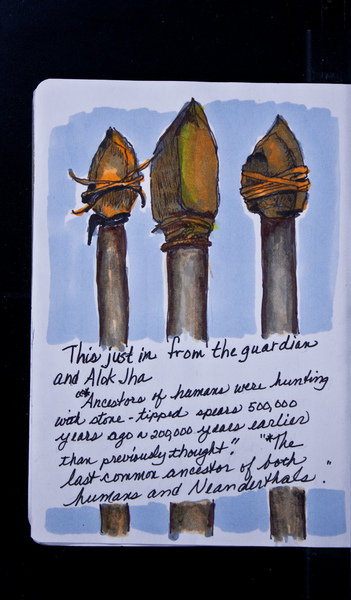 This just in from the guardian
and Alok Jha
"*Ancestors of humans were hunting
with stone-tipped spears 500,000
years ago a 200,000 years earlier
than previously thought." "*The
last common ancestor of both
humans and Neanderthals."